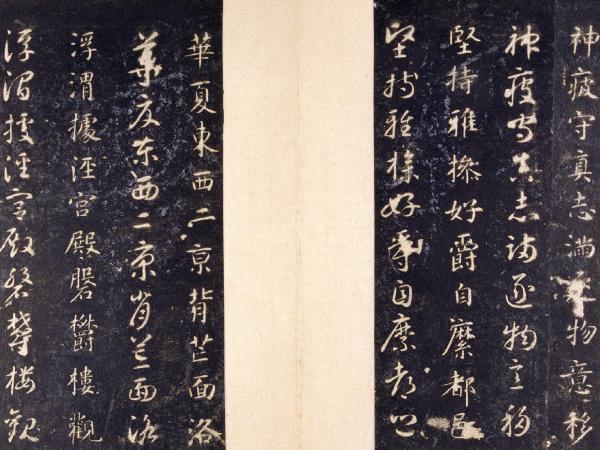 神疲守真志滿逐物意移
神疲守真志滿逐物意移
堅持雅操好爵自縻都邑
堅持雅操好爵自縻都邑
華夏東西二京背芒面洛
華夏東西二京背芒面洛
浮渭據涇宮殿磐欝樓觀
浮渭據涇宮殿磐欝樓觀